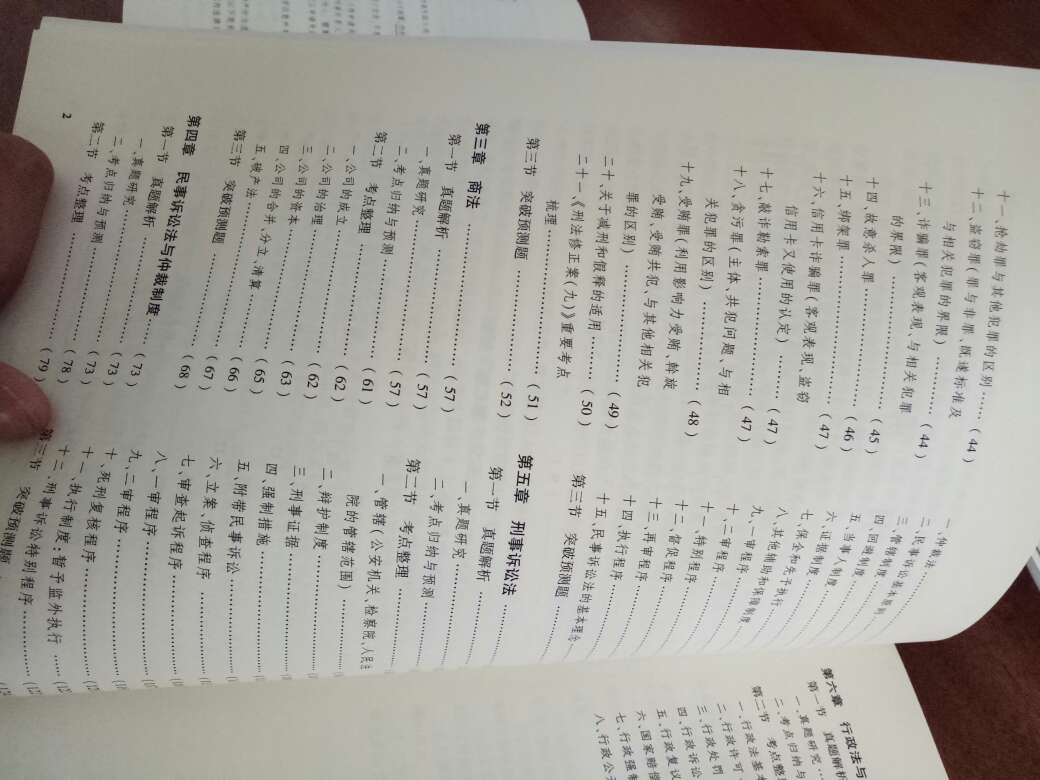 十一、抢劫罪与其他犯罪的区别……(44)
十二、盗窃罪(罪与非罪、既遂标准及
与相关犯罪的界限)……(44)
十三、诈骗罪(客观表现、与相关犯罪
的界限)……(44)
十四、故意杀人罪……(45)
十五、绑架罪……(46)
十六、信用卡诈骗罪(客观表现、盗窃
信用卡又使用的认定)……(47)
十七、敲诈勒索罪……(47)
十八、贪污罪(主体、共犯问题、与相
关犯罪的区别)……(47)
十九、受贿罪(利用影响力受贿、斡旋
受贿、受贿共犯、与其他相关犯
罪的区别)……(48)
二十、关于减刑和假释的适用……(49)
二十一、《刑法修正案(九)》重要考点
梳理……(50)
第三节 突破预测题……(51)
第三章 商法……(57)
第一节 真题解析……(57)
一、真题研究……(57)
二、考点归纳与预测……(57)
第二节 考点整理……(61)
一、公司的成立……(62)
二、公司的治理……(62)
三、公司的资本……(63)
四、公司的合并、分立、清算……(65)
五、破产法……(66)
第三节 突破预测题……(67)
第四章 民事诉讼法与仲裁制度……(73)
第一节 真题解析……(73)
一、真题研究……(73)
二、考点归纳与预测……(78)
第二节 考点整理……(79)
2
一、仲裁法
二、民事诉讼基本原则
三、管辖制度
四、回避制度
五、当事人制度
六、证据制度
七、保全和先予执行
八、其他辅助和保障制度
九、一审程序
十、二审程序
十一、特别程序
十二、督促程序
十三、再审程序
十四、执行程序
十五、民事诉讼法的基本理念
第三节 突破预测题
第五章 刑事诉讼法
第一节 真题解析
一、真题研究
二、考点归纳与预测
第二节 考点整理
一、管辖(公安机关、检察院、人民法
院的管辖范围)
二、辩护制度
三、刑事证据
四、强制措施
五、附带民事诉讼
六、立案、侦查程序
七、审查起诉程序
八、一审程序
九、二审程序
十、死刑复核程序
十一、执行制度:暂予监外执行
十二、刑事诉讼特别程序
第三节 突破预测题
第六章 行政法与
第一节 真题解析
一、真题研究
二、考点归纳与
第二节 考点整
一、行政法基本
二、行政许可
三、行政处罚
四、行政诉讼
五、行政复议
六、国家赔偿
七、行政强制
八、行政公